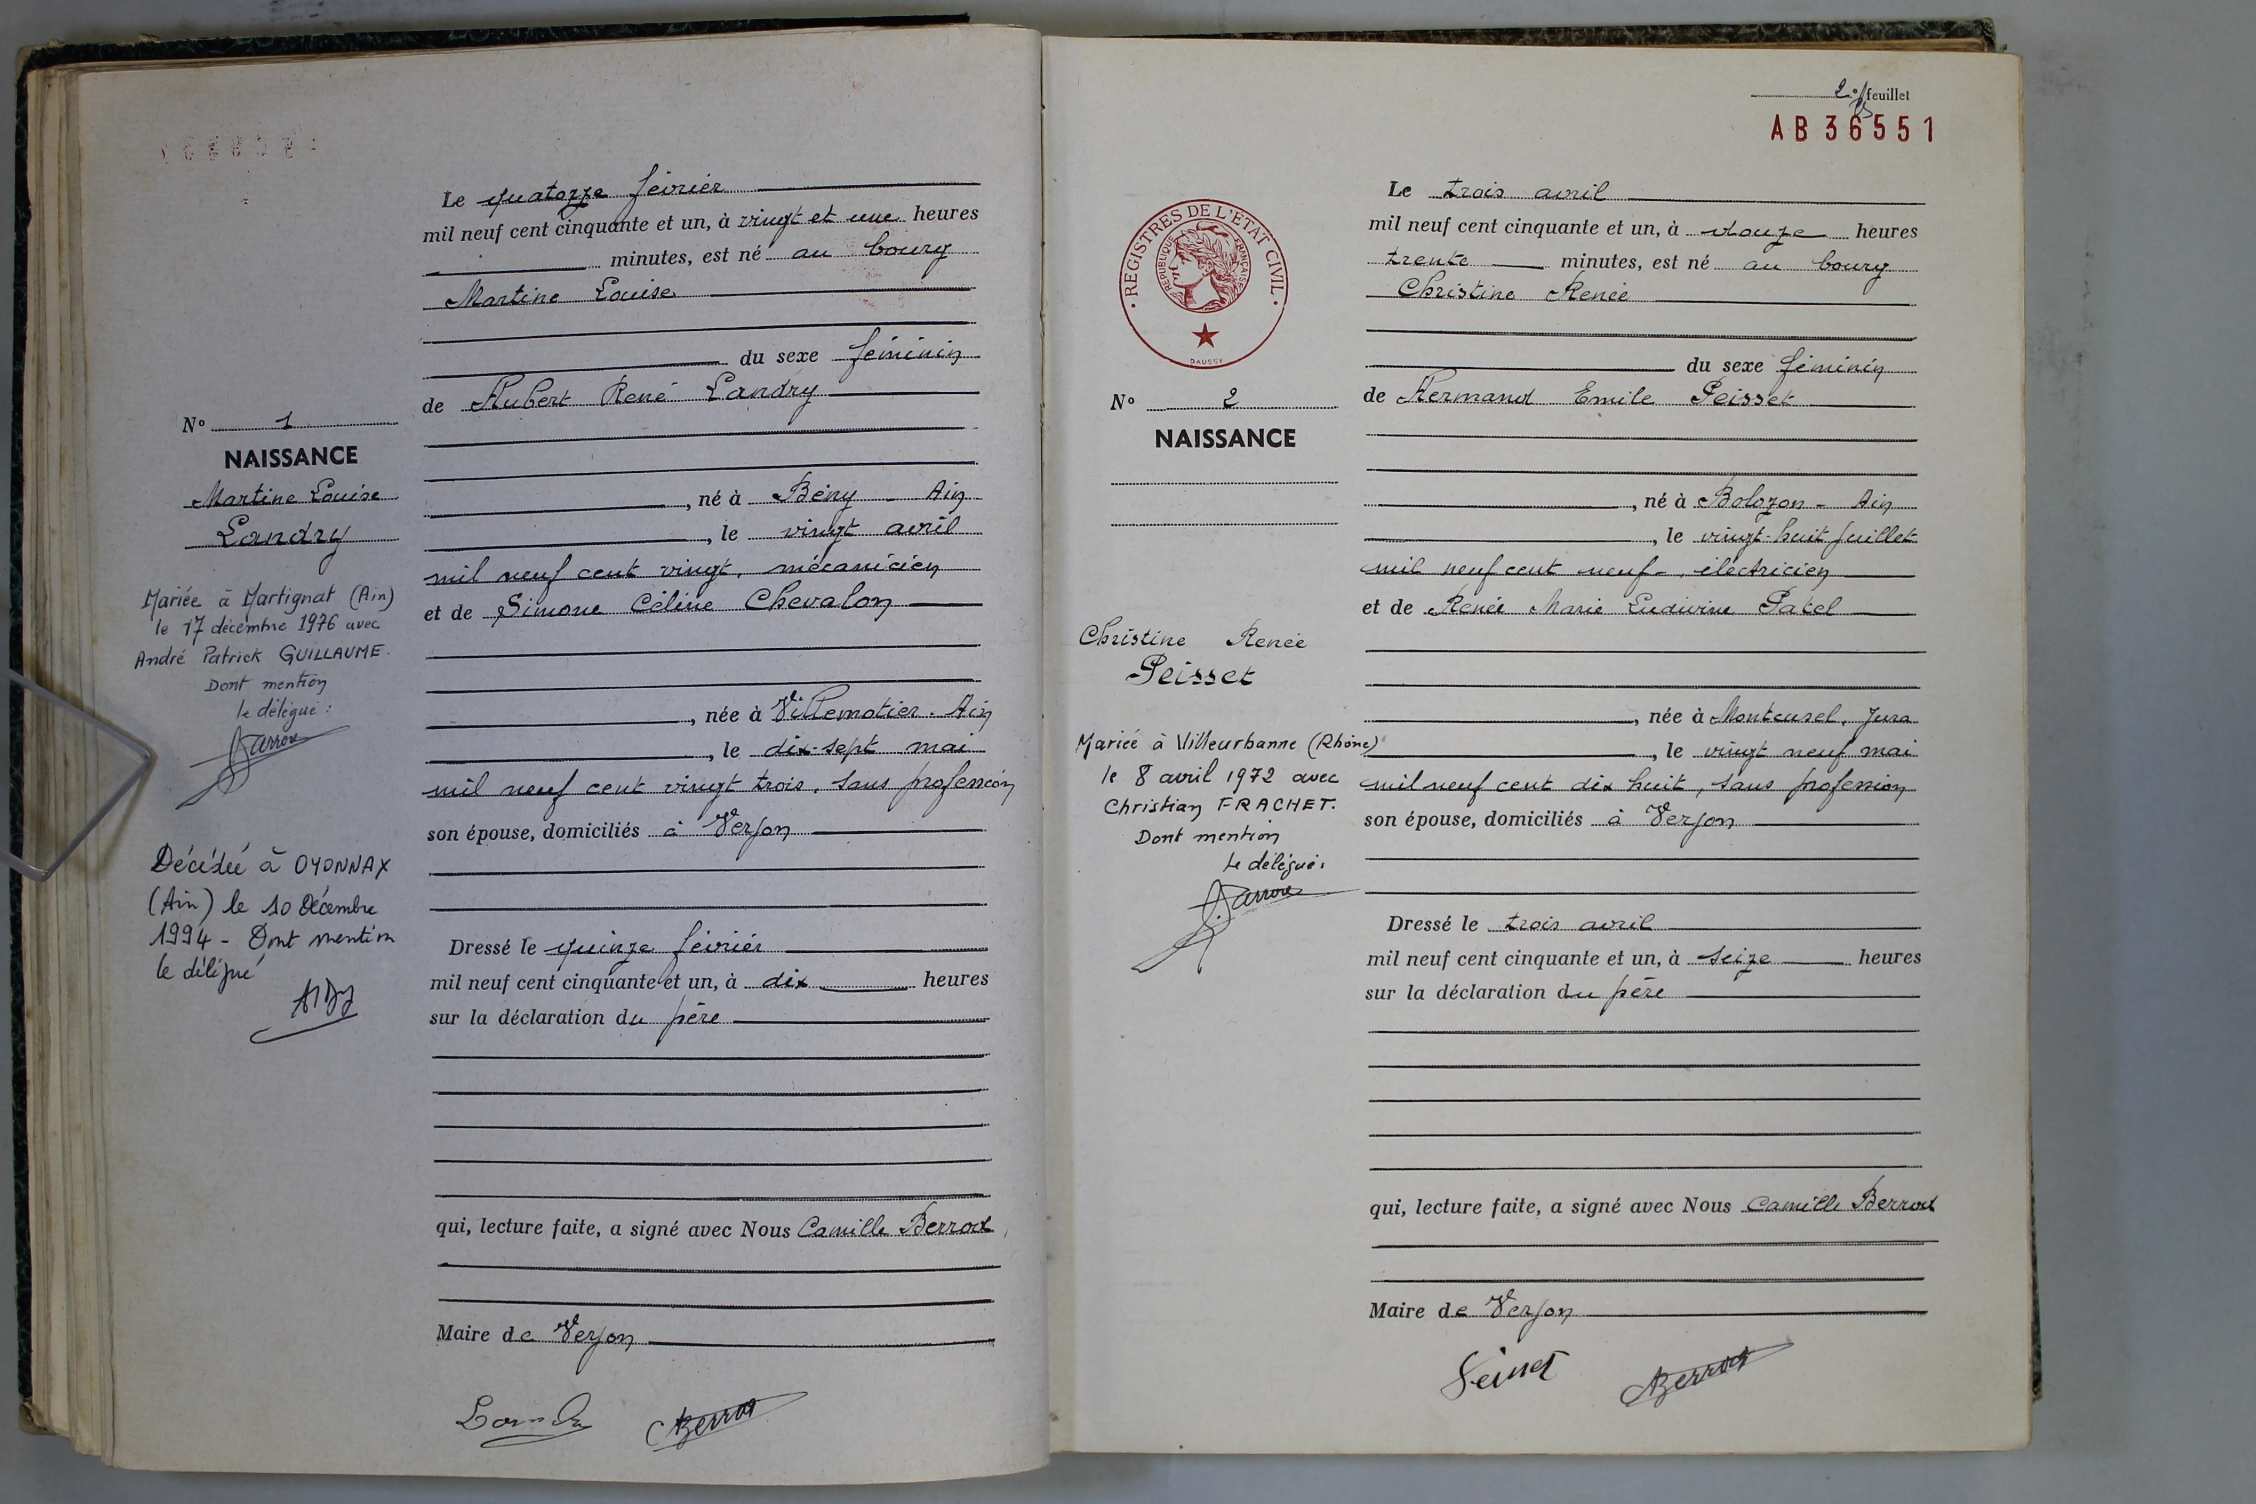 Le quatorze février
mil neuf cent cinquante et un, à vingt et une heures
minutes, est né au bourg
Martine Louise
du sexe féminin
de Hubert René Landry
né à Bény - Ain
, le vingt avril
mil neuf cent vingt, mécanicien
et de Simone Céline Chevalon
, née à Villemotier. Ain
, le dix-sept mai
mil neuf cent vingt trois, sans profession
son épouse, domiciliés à Verjon
Dressé le quinze février
mil neuf cent cinquante et un, à dix heures
sur la déclaration du père
qui, lecture faite, a signé avec Nous Camille Berrod
Maire de Verjon
Landry Berrod
No 1
NAISSANCE
Martine Louise
Landry
Mariée à Martignat (Ain)
le 17 décembre 1976 avec
André Patrick GUILLAUME.
Dont mention
le délégué :
Décédée à OYONNAX
(Ain) le 10 Décembre
1994 - Dont mention
le délégué
2e feuillet
AB36551
Le trois avril
mil neuf cent cinquante et un, à douze heures
trente minutes, est né au bourg
Christine Renée
du sexe féminin
de Hermand Emile Peisset
, né à Bolozon - Ain
, le vingt-huit juillet
mil neuf cent neuf -, électricien
et de Renée Marie Ludivine Patel
, née à Montcusel, Jura
, le vingt neuf mai
mil neuf cent dix huit, sans profession
son épouse, domiciliés à Verjon
Dressé le trois avril
mil neuf cent cinquante et un, à seize heures
sur la déclaration du père
qui, lecture faite, a signé avec Nous Camille Berrod
Maire de Verjon
Peisset Berrod
REGISTRES DE L'ÉTAT CIVIL
RÉPUBLIQUE FRANÇAISE
DAUSSY
No 2
NAISSANCE
Christine Renée
Peisset
Mariée à Villeurbanne (Rhône)
le 8 avril 1972 avec
Christian FRACHET.
Dont mention
le délégué :